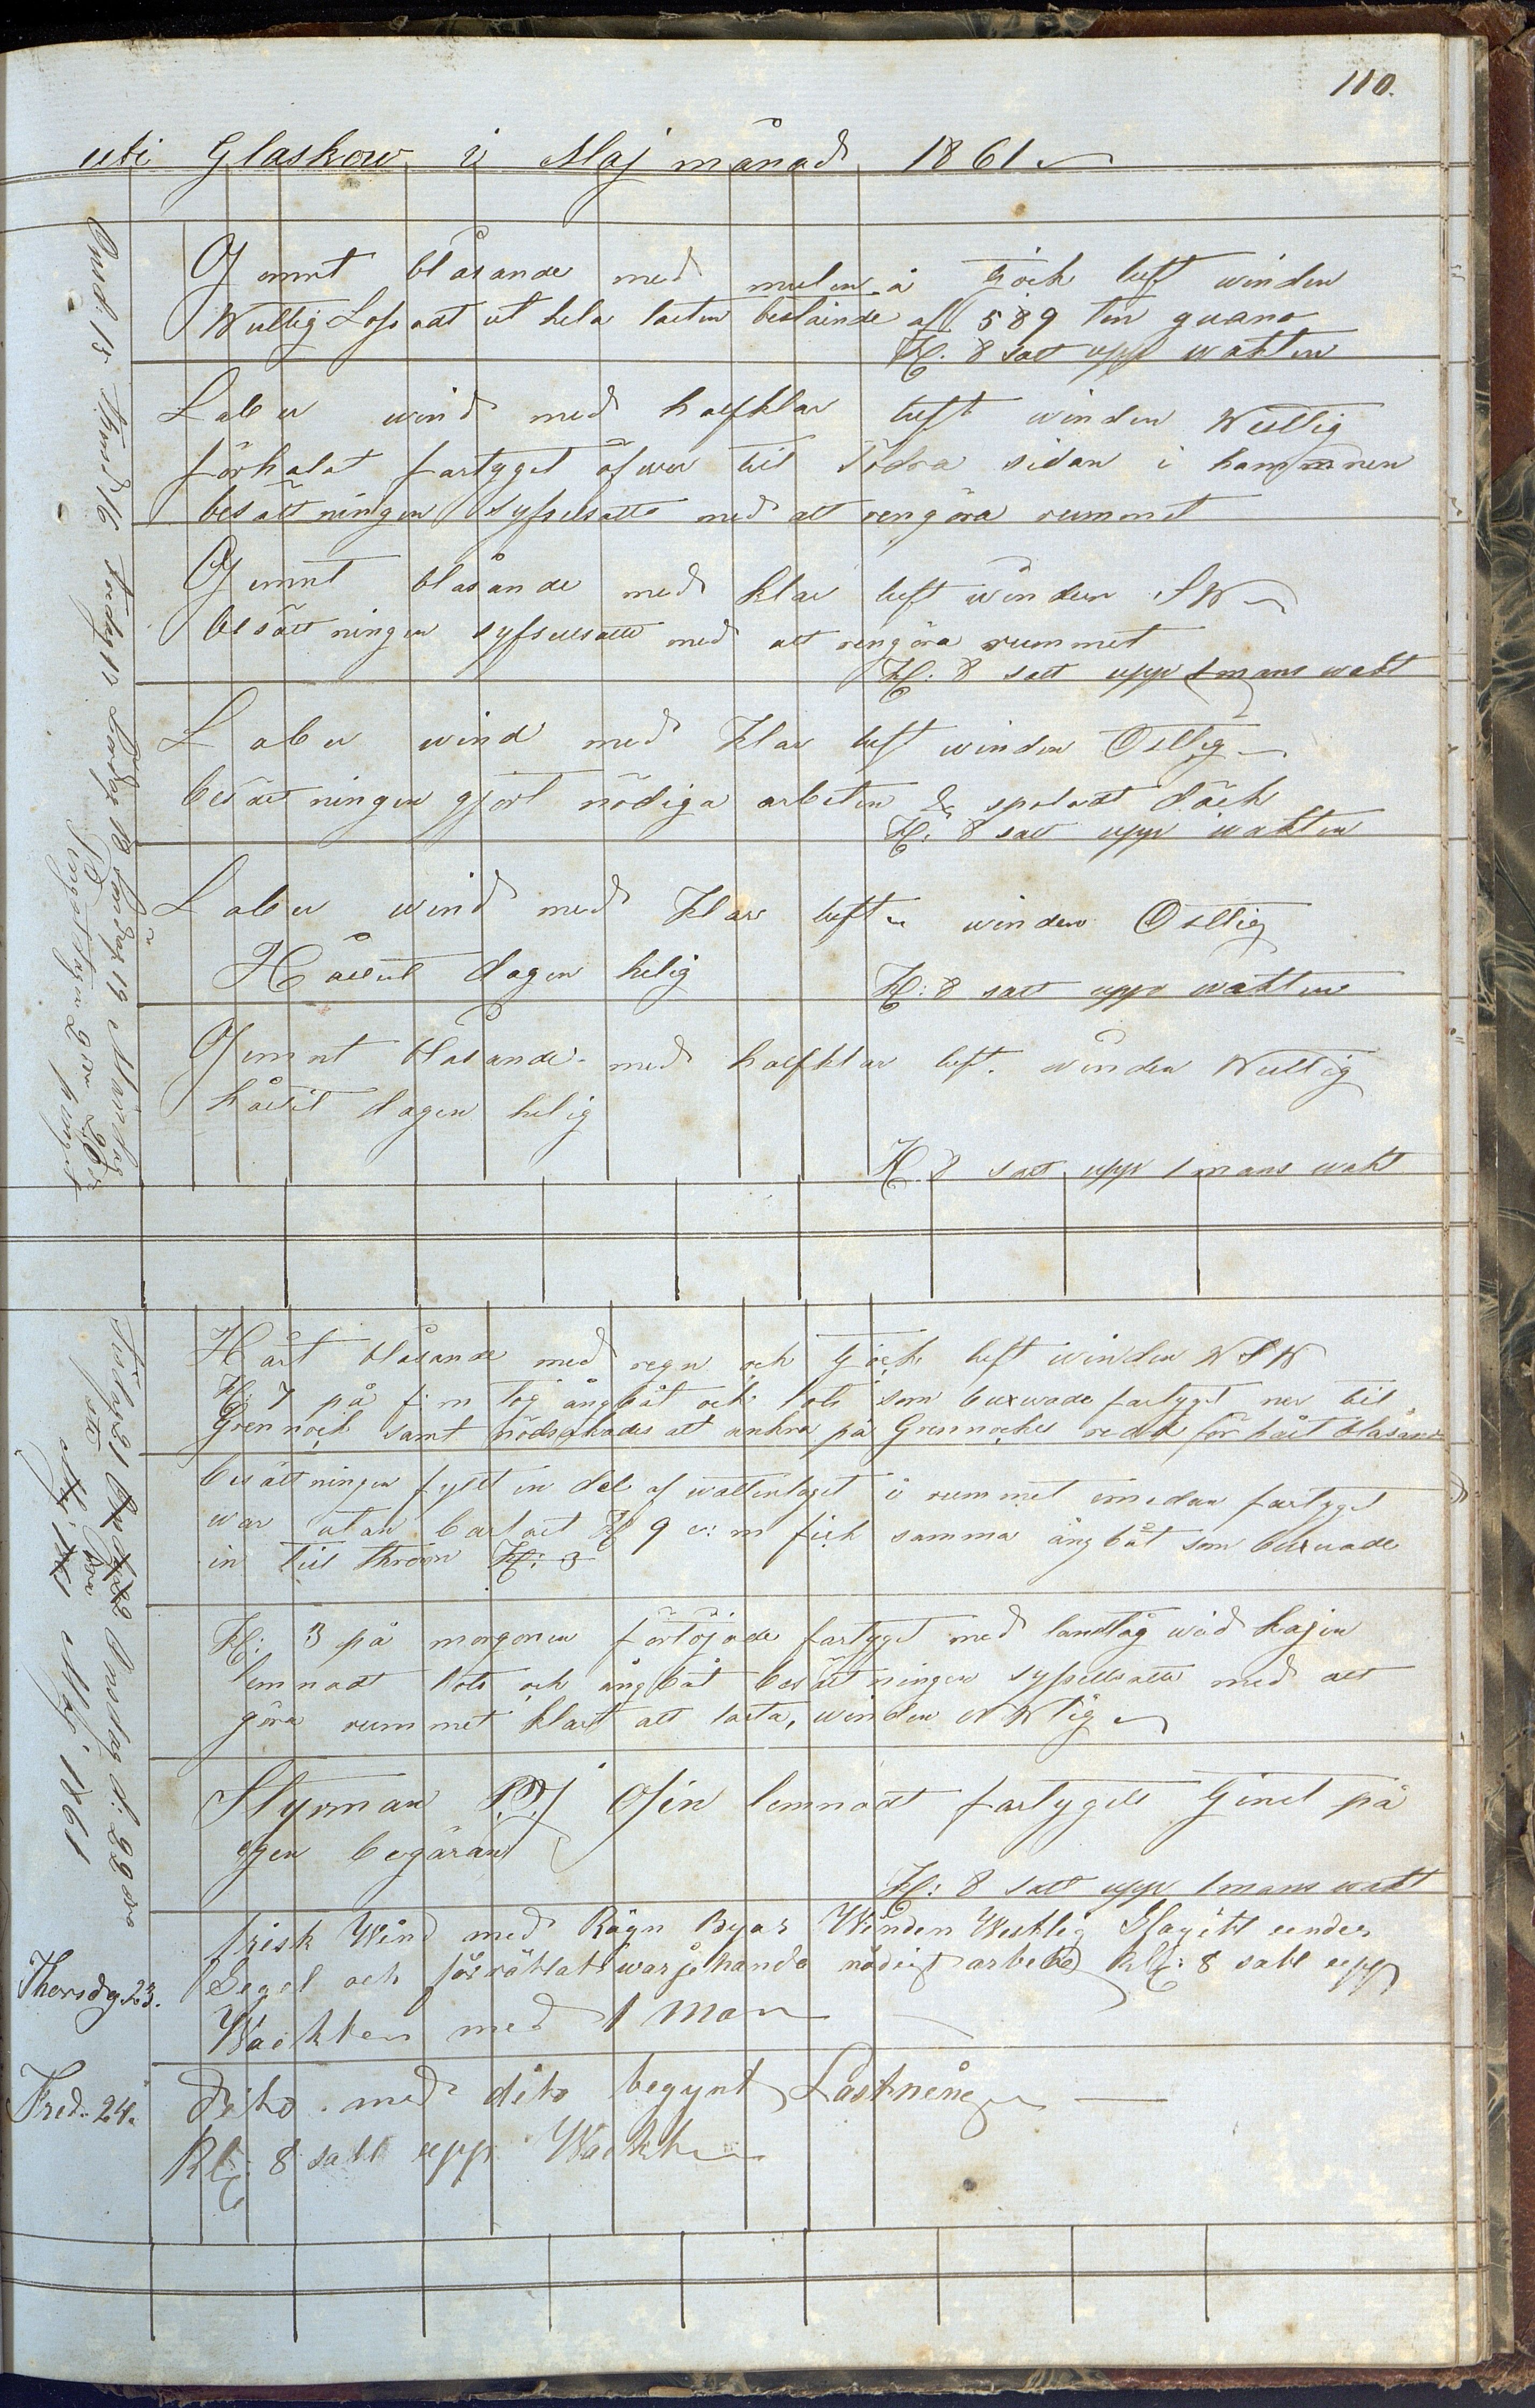 110.
uti Glaskow i Maj månad 1861
Onsd. 15 Thorsd 16 Fredag 17 Lördag 18 Söndag 19 Måndag 20
Jemnt blåsande med mulin å tjock luft winden
Westlig Lossadt ut hela lasten bestående af 589 ton guano
Kl. 8 satt upp wakten
Laber wind med halfklar luft winden Westlig
förhalat fartyget öfwer till Södra sidan i hamnen
besättningen sysselsatts med att rengöra rummet
Jemnt blåsande med klar luft winden SW
besättningen sysselsatts med att rengöra rummet
Kl: 8 satt upp 1 mans wakt
Laber wind med klar luft winden Ostlig
besättningen gjort nödiga arbeten & spoladt däck
Kl: 8 satt upp wakten
Laber wind med klar luft winden Ostlig
Hållit dagen helig
Kl: 8 satt upp wakten
Jemnt blåsande med halfklar luft. winden Westlig
hållit dagen helig
Kl. 8 satt upp 1 mans wakt
Tisdag 21 Onsdag d: 22 dra
Maj 1861
Hårt blåsande med regn och tjock luft winden WSW
Kl: 7 på f: m tog ångbåt och lots som buxerade fartyget ner til
Grennock samt nödsakades att ankra på Grennocks redd för hårt blåsande
besättningen fyllt in del af wattenlaget i rummet emedan fartyget
war utan barlast Kl 9 e: m fick samma ångbåt som buxerade
in till Throon Kl: 3
Kl: 3 på morgonen förtöjade fartyget med landtåg wid Kajen
lemnadt lots och ångbåt besättningen sysselsatts med att
göra rummet klart att lasta, winden NWlig
Styrman P.J. Ofin lemnadt fartygets tjenst på
egen begäran
Kl: 8 satt upp 1 mans wakt
Thorsdg 23.
frisk Wind med Rägn Byar Winden Westlig Slagitt under
Segel och förrättat warjehanda nödigt arbete Kl: 8 satt upp
Wackten med 1 Man
Fred. 24.
Dito med dito begynt Lastning
Kl: 8 satt upp Wackten